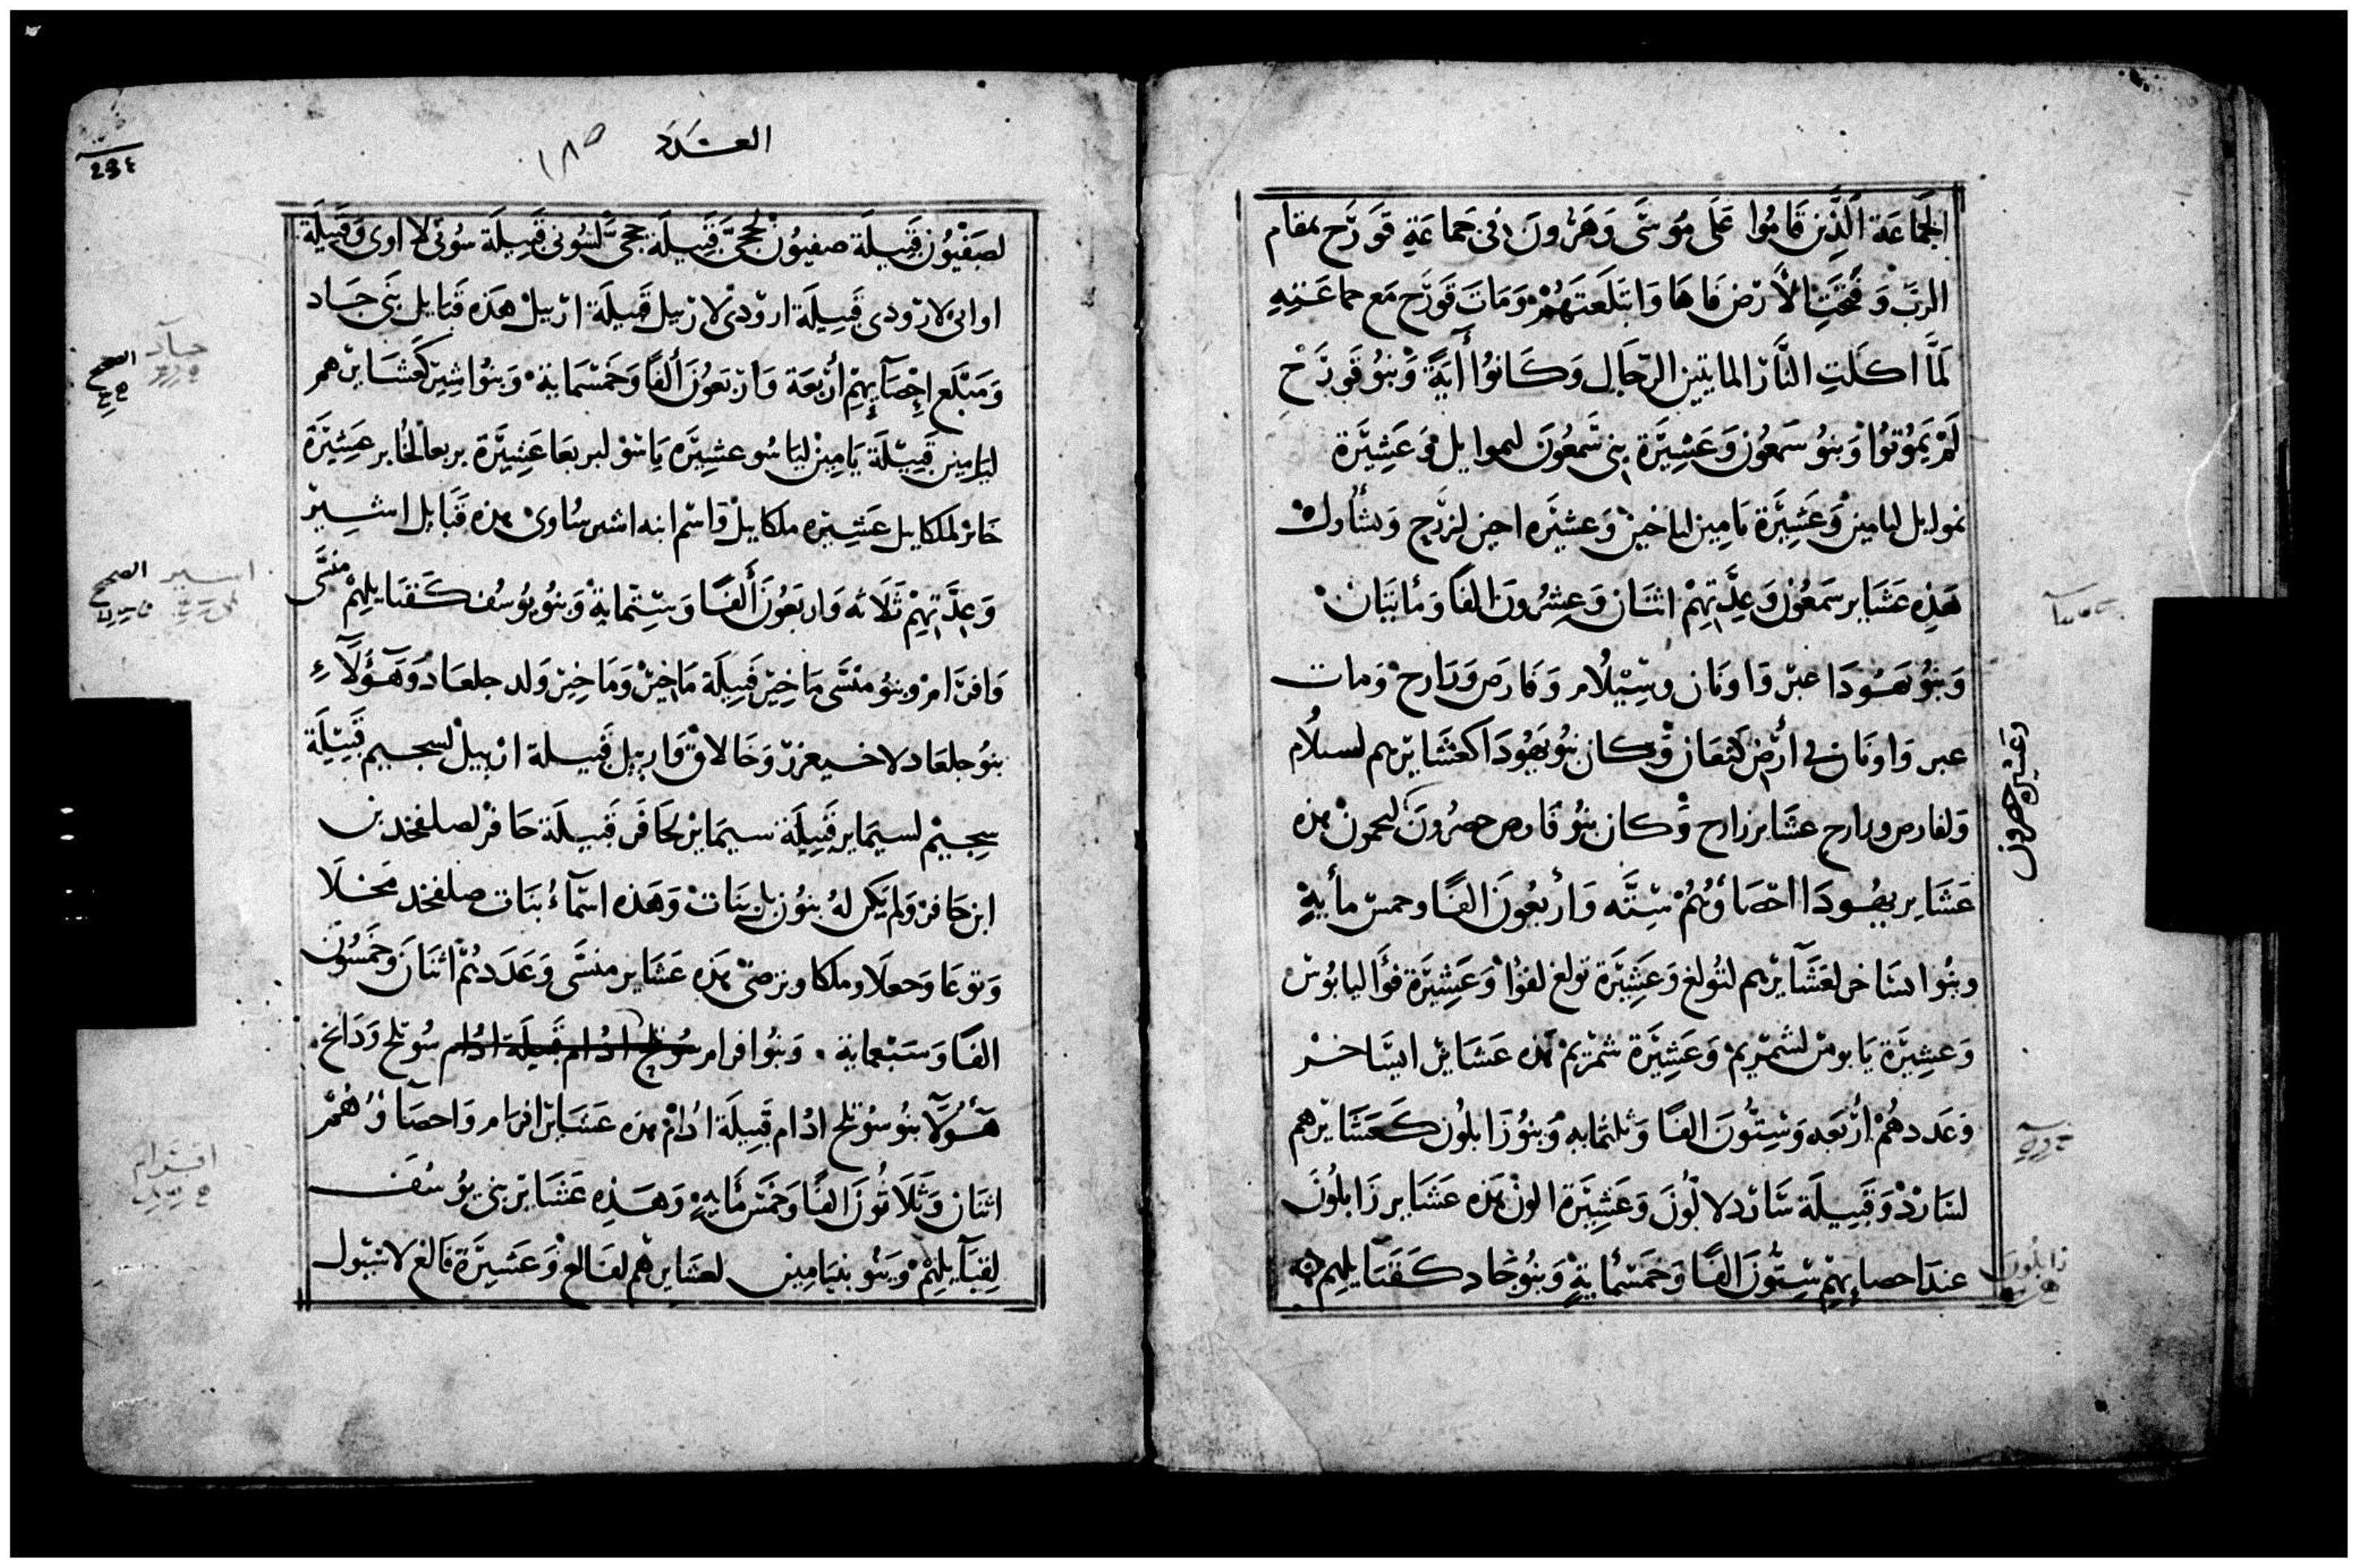 الجَماعَة الَّذِين قَامُوا عَلَى مُوسَى وَهَرُونَ فى جَماعَةِ قَورَح بمقام
الربّ وَفَتَحَتِ الأرْض فَاهَا وَابتَلَعتهُمْ وَمَاتَ قَورَح مَع جماعَتِهِ
لَمَّا اكلَتِ النَّار المايتين الرجَال وَكَانُوا آيَةً وَبنُو قَورَح
لَمْ يَمُوتُوا وَبنُو سَمعُون وَعَشِيرَة بنى شَمعُونَ لنموايل وَعَشِيرَة
نموايل ليامين وَعَشِيرَة يَامِين لياخين وَعشيرَه اخين لزرَح وَشأُول
هَذِهِ عَشَاير سَمعُون وَعِدَّتِهِمْ اثنَان وَعِشرُونَ الفًا وَمأيتَان
وَبنُو يَهُودَا عير وَاونَان وسِيْلُام وَفَارَص وَرَارح وَمات
عير وَاونَان فى أرْض كنعَان وَكان بنُو يَهُودَا كعَشَايرهم لسيلُام
وَلفارص ورارح عشَاير زارح وَكان بنُو فَارص حصرُونَ لحمون هذه
وعشيرة حصرون
عَشَاير يهُودَا احصَاؤهُمْ سِتَّه وَأربعُونَ الفًا وخمس مأيةٍ
وبنُو ايسَاخر لعَشَآيرهم لتُولغ وَعَشِيرَة تولغ لفُوا وَعَشِيرَة فُوَا ليابُوس
وَعشِيرَة يَابوس لشمريم وَعَشِيرَة شمريم هذه عَشَاير ايسَاخر
وَعَددهُمْ أربعَه وَسِتُّونَ الفًا وَثلثمايه وَبنُو زَابلُون كَعَشَايرهم
لسَارد وَقَبِيلَة سَارد لالُونَ وَعَشِيرَة الون هذه عَشَاير زَابلُون
زابلُون
عندَ احصايهِمْ سِتُّونَ الفًا وَخَمسْمأيةٍ وَبنُو جَاد كَقَبَايلهم
العَدَد
١٨٥
234
لصَفْيُون قَبِيلَة صفيون لحجىّ قَبِيلَة حجىّ لسُونى قَبِيلَة سُونى لا اوى وَقَبِيلَة
اواى لارودى قَبِيلَة ارودى لارييل قَبِيلَة ارييل هَذه قَبَايل بنَى جَاد
جاد
الصحح
وَمَبْلَغ إِحْصَآيِهِمْ أرْبعَة وَارْبَعُونَ ألفًا وَخَمسْماية وَبنُو اشِير كَعَشَايرهم
ليَامِين قَبِيلَة يَامِين ليَاسُو عشِيرَه يَاسو لبريعَا عَشِيرَة بريعا لخابر عَشِيرَة
خَابر لملكاييل عَشِيره ملكاييل وَاسْم ابنه اشير ساوى هذه قَبَايل اشِير
اشير الصحح
وَعِدَّتهم ثَلاثه وَاربَعُونَ ألفًا وَسِتماية وَبنُو يُوسُف كَقَبَايلهِمْ منسَّى
وَافرَام وبنُو منسَّى مَاخِير قَبِيلَة مَاخِيْر وَمَاخِيْر وَلد جلعَاد وَهَؤُلَآءِ
بنُو جلعَاد لاخسيعزر وَخَالاق وَارييل قَبيلة ارييل لسجيم قَبِيلَة
سِجيم لسيمَاير قَبِيلَة سيمَاير لحَافَر قَبِيلَة حَافر لصلفحد بن
ابن حَافر وَلم يَكن لهُ بنُون بل بنَات وَهَذه اسْمآءُ بنَات صلفحد مَحَلا
وَنوعَا وَحعلَا وملكا وترصَى هذه عَشَاير منسَّى وَعَدَدهُمْ اثنَان وَخَمسُون
الفًا وَسَبْعماية . وَبنُو افرام سُوتلح ادُام قَبِيلَة ادُام سُوتلح وَدَاخ
هَؤُلآ بنُو سُوتلح ادُام قَبِيلَة ادُام هذه عَشَايرَ افرَام وَاحصَآؤهُمْ
افرام
اثنَان وَثلَاثُونَ الفًا وَخَمْس مأيةٍ وَهَذِهِ عَشَاير بنى يوُسُفَ
لِقَبَآيلهِمْ وَبَنُو بنيَامِين لعشَايرهم لفَالغ وَعَشِيرَة فَالغ لاشبُول